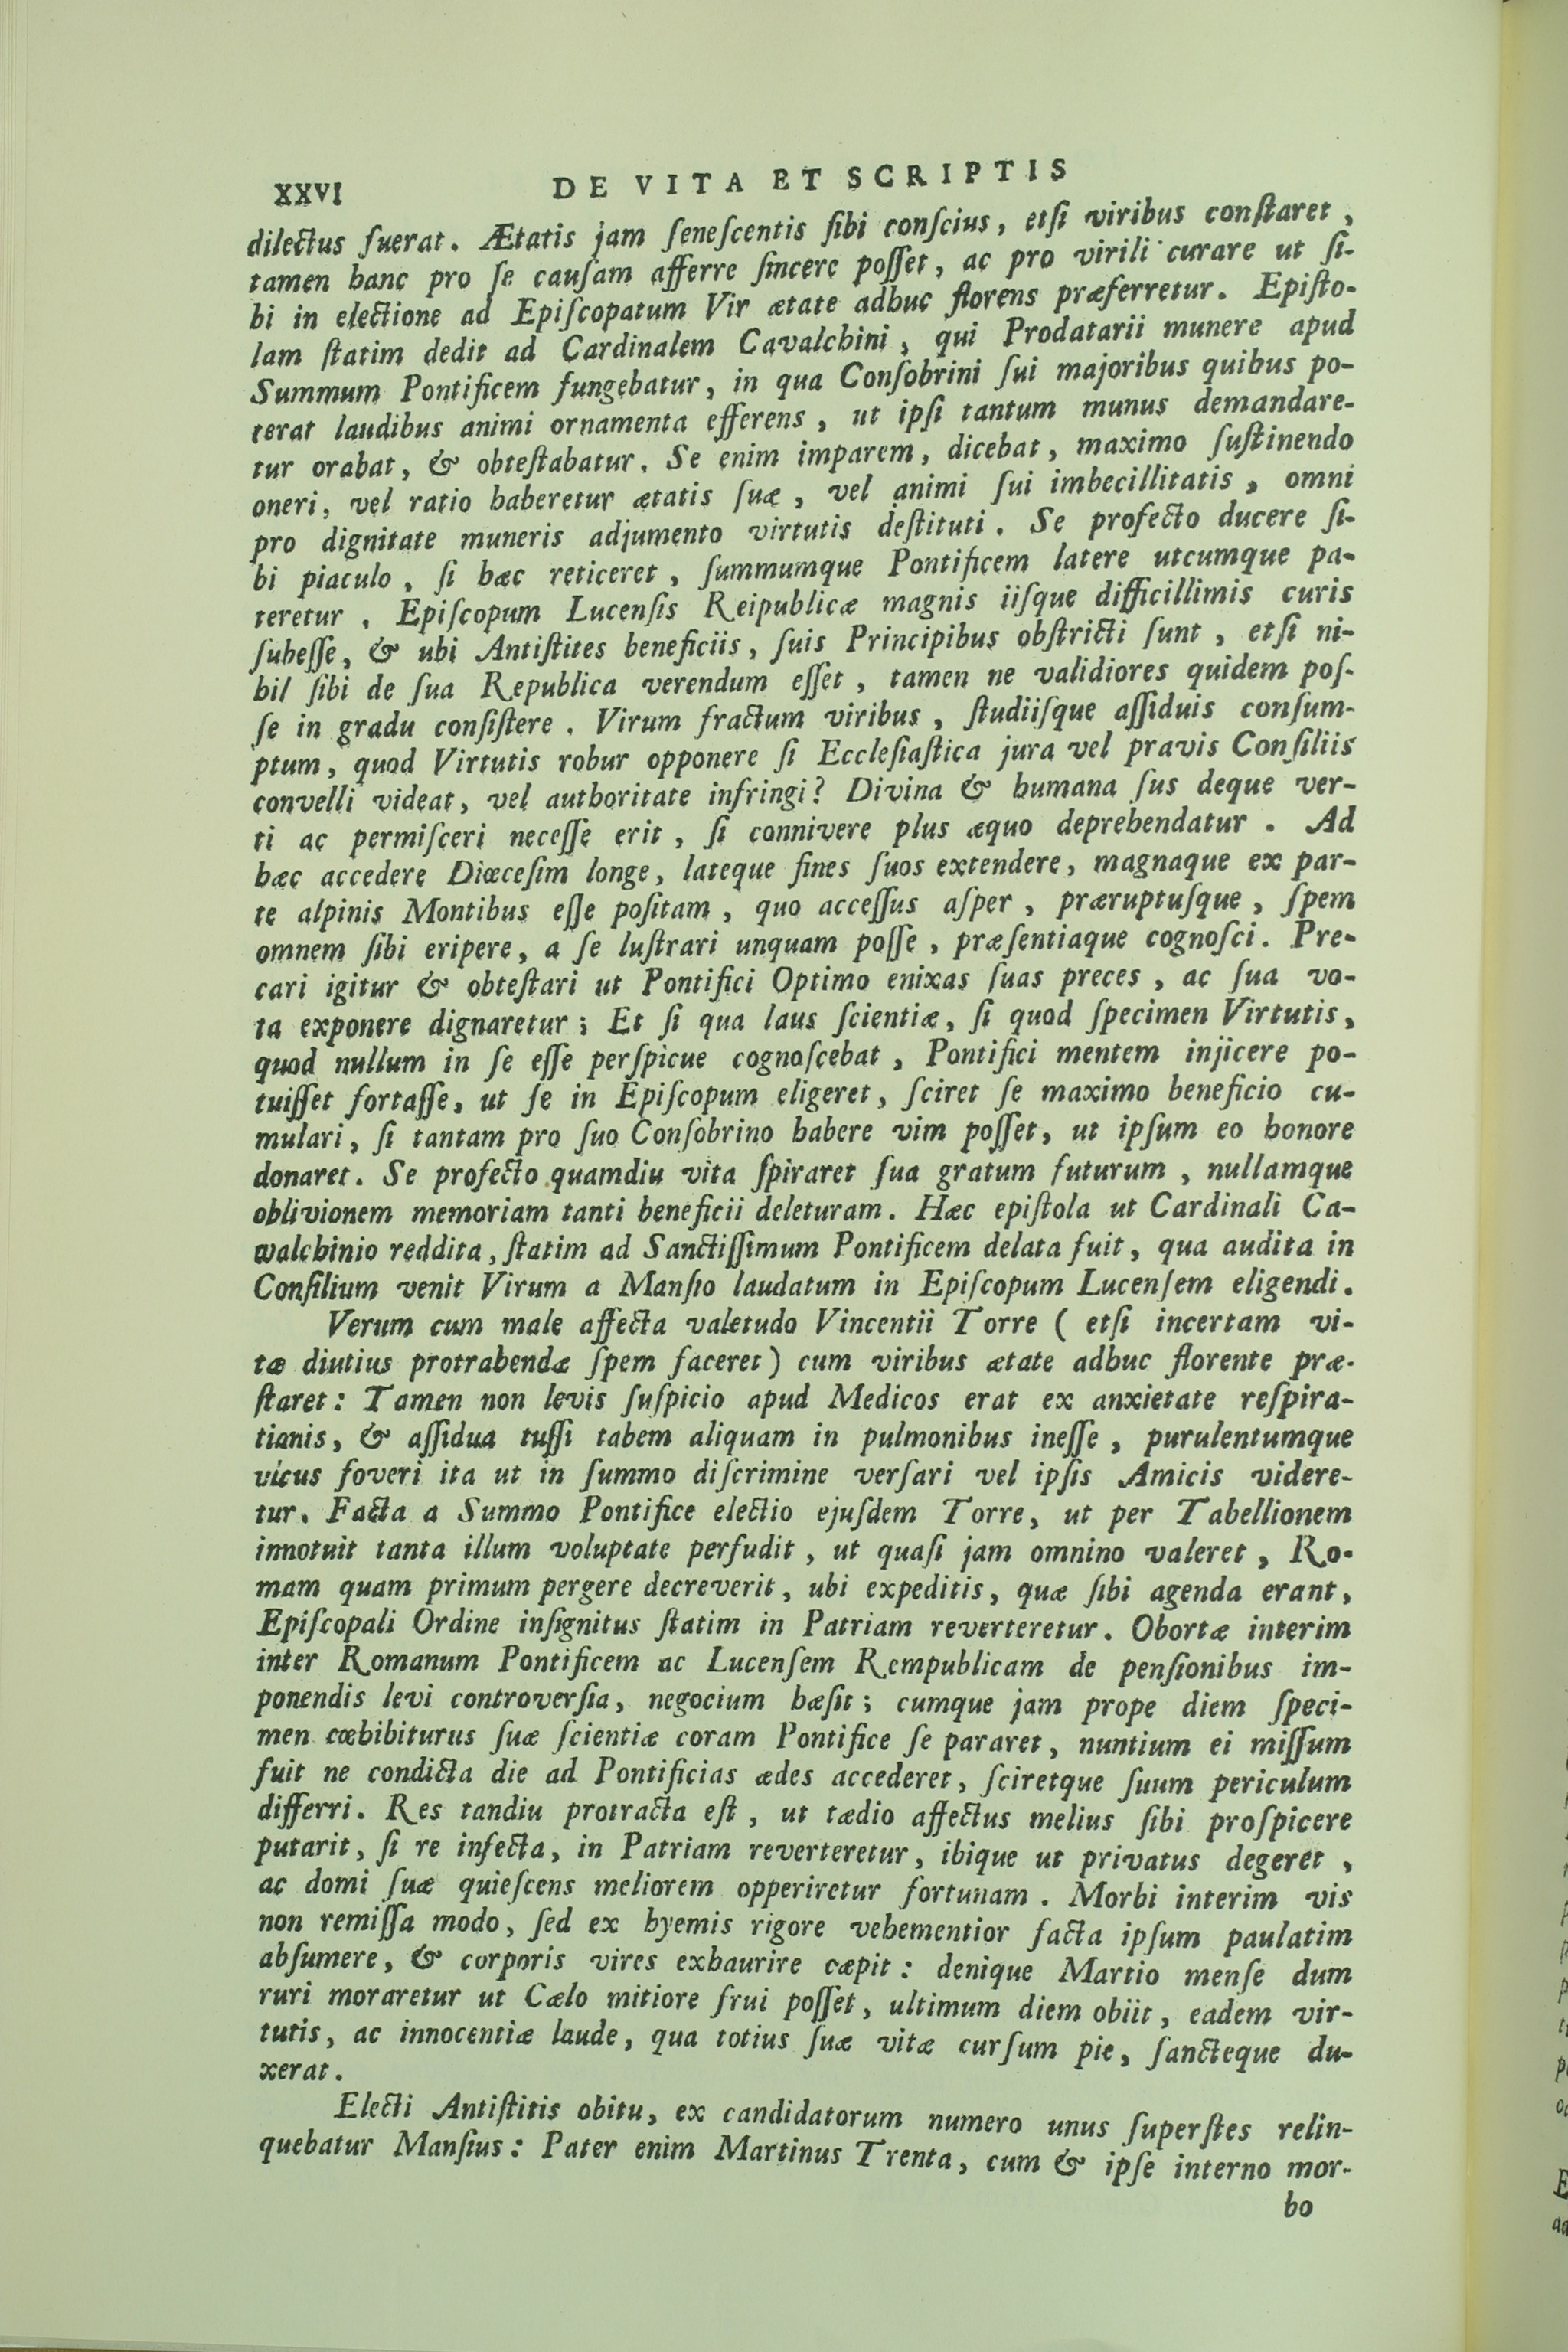 XXVI DE VITA ET SCRIPTIS
dilectus fuerat. Ætatis jam ſeneſcentis ſibi conſcius, etſi viribus conſtaret,
tamen hanc pro ſe cauſam afferre ſincere poſſet, ac pro virili curare ut ſi-
bi in electione ad Epiſcopatum Vir ætate adhuc florens præferretur. Epiſto-
lam ſtatim dedit ad Cardinalem Cavalchini, qui Prodatarii munere apud
Summum Pontificem fungebatur, in qua Conſobrini ſui majoribus quibus po-
terat laudibus animi ornamenta efferens, ut ipſi tantum munus demandare-
tur orabat, & obteſtabatur. Se enim imparem, dicebat, maximo ſuſtinendo
oneri, vel ratio haberetur ætatis ſuæ, vel animi ſui imbecillitatis, omni
pro dignitate muneris adjumento virtutis deſtituti. Se profecto ducere ſi-
bi piaculo, ſi hæc reticeret, ſummumque Pontificem latere utcumque pa-
teretur. Epiſcopum Lucenſis Reipublicæ magnis iiſque difficillimis curis
ſubeſſe, & ubi Antiſtites beneficiis, ſuis Principibus obſtricti ſunt, etſi ni-
hil ſibi de ſua Republica verendum eſſet, tamen ne validiores quidem poſ-
ſe in gradu conſiſtere. Virum fractum viribus, ſtudiiſque aſſiduis conſum-
ptum, quod Virtutis robur opponere ſi Eccleſiaſtica jura vel pravis Conſiliis
convelli videat, vel authoritate infringi? Divina & humana ſus deque ver-
ti ac permiſceri neceſſe erit, ſi connivere plus æquo deprehendatur. Ad
hæc accedere Diœceſim longe, lateque fines ſuos extendere, magnaque ex par-
te alpinis Montibus eſſe poſitam, quo acceſſus aſper, præruptuſque, ſpem
omnem ſibi eripere, a ſe luſtrari unquam poſſe, præſentiaque cognoſci. Pre-
cari igitur & obteſtari ut Pontifici Optimo enixas ſuas preces, ac ſua vo-
ta exponere dignaretur; Et ſi qua laus ſcientiæ, ſi quod ſpecimen Virtutis,
quod nullum in ſe eſſe perſpicue cognoſcebat, Pontifici mentem injicere po-
tuiſſet fortaſſe, ut ſe in Epiſcopum eligeret, ſciret ſe maximo beneficio cu-
mulari, ſi tantam pro ſuo Conſobrino habere vim poſſet, ut ipſum eo honore
donaret. Se profecto quamdiu vita ſpiraret ſua gratum futurum, nullamque
oblivionem memoriam tanti beneficii deleturam. Hæc epiſtola ut Cardinali Ca-
valchinio reddita, ſtatim ad Sanctiſſimum Pontificem delata fuit, qua audita in
Conſilium venit Virum a Manſio laudatum in Epiſcopum Lucenſem eligendi.
Verum cum male affecta valetudo Vincentii Torre ( etſi incertam vi-
tæ diutius protrahendæ ſpem faceret) cum viribus ætate adhuc florente præ-
ſtaret: Tamen non levis ſuſpicio apud Medicos erat ex anxietate reſpira-
tionis, & aſſidua tuſſi tabem aliquam in pulmonibus ineſſe, purulentumque
vicus foveri ita ut in ſummo diſcrimine verſari vel ipſis Amicis videre-
tur. Facta a Summo Pontifice electio ejuſdem Torre, ut per Tabellionem
innotuit tanta illum voluptate perfudit, ut quaſi jam omnino valeret, Ro-
mam quam primum pergere decreverit, ubi expeditis, quæ ſibi agenda erant,
Epiſcopali Ordine inſignitus ſtatim in Patriam reverteretur. Obortæ interim
inter Romanum Pontificem ac Lucenſem Rempublicam de penſionibus im-
ponendis levi controverſia, negocium hæſit; cumque jam prope diem ſpeci-
men cœhibiturus ſuæ ſcientiæ coram Pontifice ſe pararet, nuntium ei miſſum
fuit ne condicta die ad Pontificias ædes accederet, ſciretque ſuum periculum
differri. Res tandiu protracta eſt, ut tædio affectus melius ſibi proſpicere
putarit, ſi re infecta, in Patriam reverteretur, ibique ut privatus degeret,
ac domi ſuæ quieſcens meliorem opperiretur fortunam. Morbi interim vis
non remiſſa modo, ſed ex hyemis rigore vehementior facta ipſum paulatim
abſumere, & corporis vires exhaurire cæpit: denique Martio menſe dum
ruri moraretur ut Cælo mitiore frui poſſet, ultimum diem obiit, eadem vir-
tutis, ac innocentiæ laude, qua totius ſuæ vitæ curſum pie, ſancteque du-
xerat.
Electi Antiſtitis obitu, ex candidatorum numero unus ſuperſtes relin-
quebatur Manſius: Pater enim Martinus Trenta, cum & ipſe interno mor-
bo